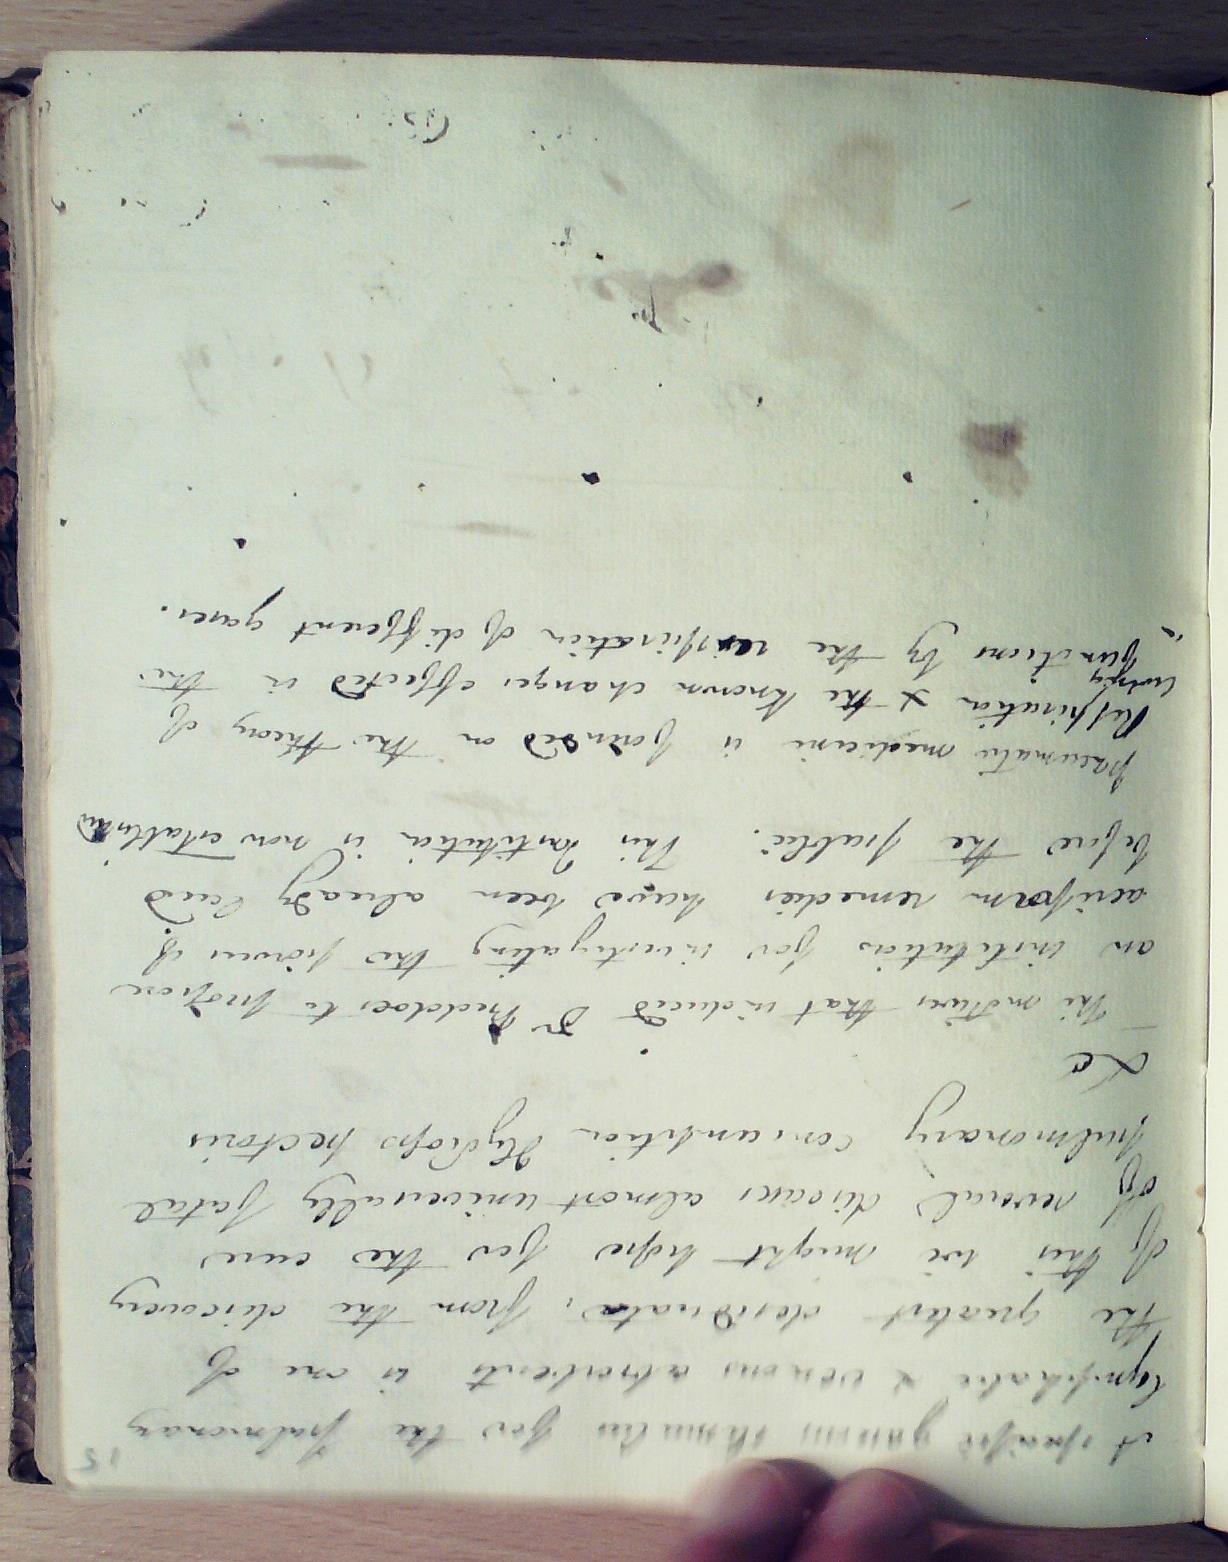 15
A specific gaseous stimulus for the pulmonary
lymphatic & venous absorbents is one of
the greatest desiderata, from the discovery
of this we might hope for the cure
of several diseases almost universally fatal
pulmonary consumption Hydrops pectoris
&c
The motives that induced Dr Beddoes to propose
an institution for investigating the powers of
aeriform remedies have been already laid
before the public. This Institution is now establishd
pneumatic medicine is founded on the theory of
Respiration & the known changes effected in the
living
functions by the respiration of different gases.